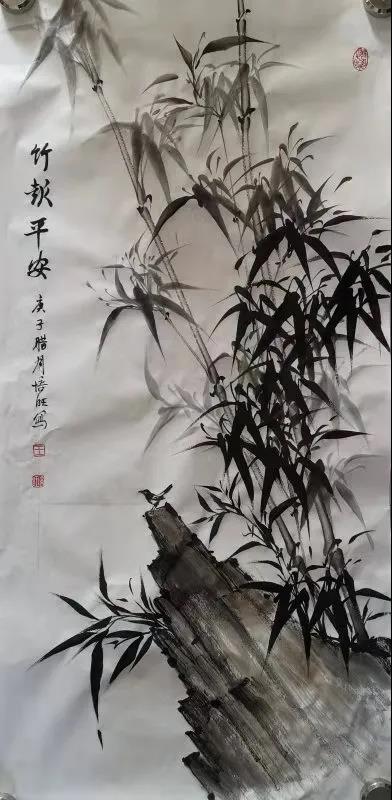 竹報平安
庚子腊月培旺写
王